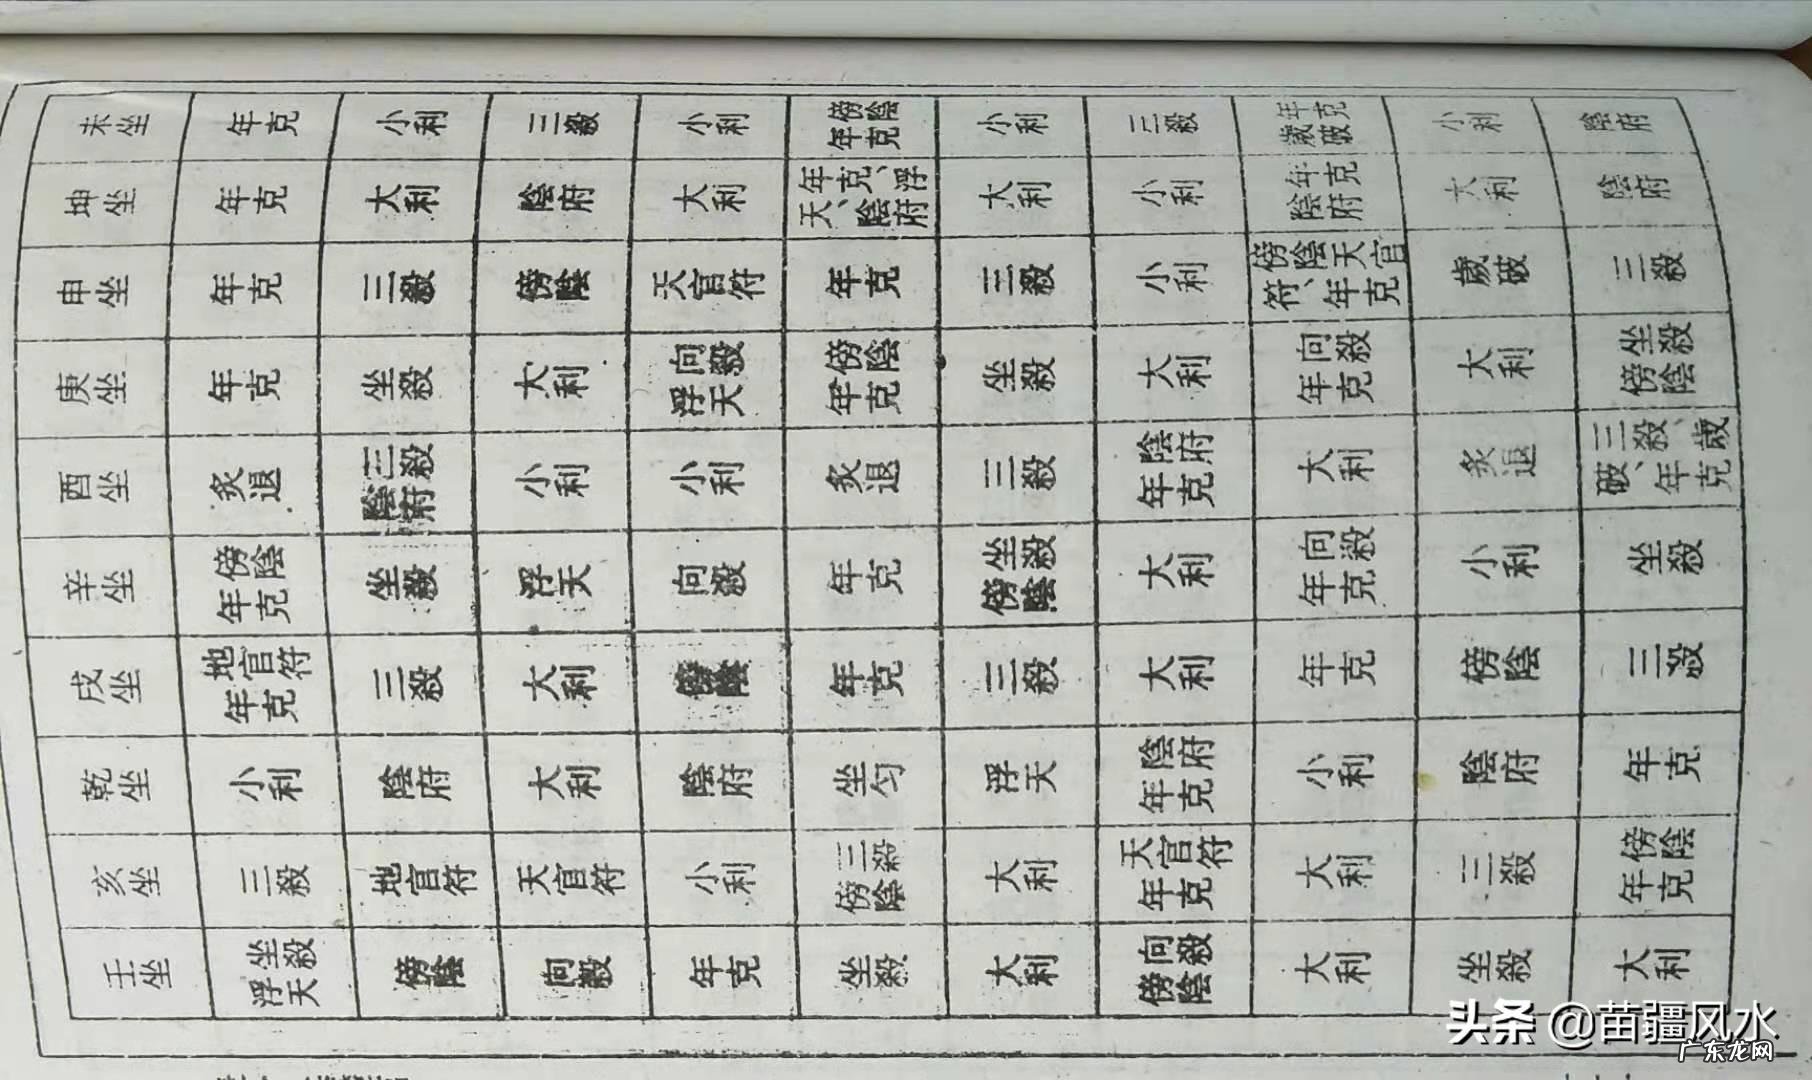 未坐 坤坐 申坐 庚坐 酉坐 辛坐 戌坐 乾坐 亥坐 壬坐
年克 年克 年克 年克 炙退 傍陰年克 地官符年克 小利 三殺 坐殺浮天
小利 大利 三殺 坐殺 三殺陰府 坐殺 三殺 陰府 地官符 傍陰
三殺 陰府 傍陰 大利 小利 浮天 大利 大利 天官符 向殺
小利 大利 天官符 向殺浮天 小利 向殺 傍陰 陰府 小利 年克
傍陰年克 年克、浮天、陰府 年克 傍陰年克 炙退 年克 年克 坐匀 三殺傍陰 坐殺
小利 大利 三殺 坐殺 三殺 坐殺傍陰 三殺 浮天 大利 大利
三殺 小利 小利 大利 陰府年克 大利 大利 陰府年克 天官符年克 向殺傍陰
年克歲破 年克陰府 傍陰天官符、年克 向殺年克 大利 向殺年克 年克 小利 大利 大利
小利 大利 歲破 大利 炙退 小利 傍陰 陰府 三殺 坐殺
陰府 陰府 三殺 坐殺傍陰 三殺、歲破、年克 坐殺 三殺 年克 傍陰年克 大利
头条 @苗疆风水
广东龙网